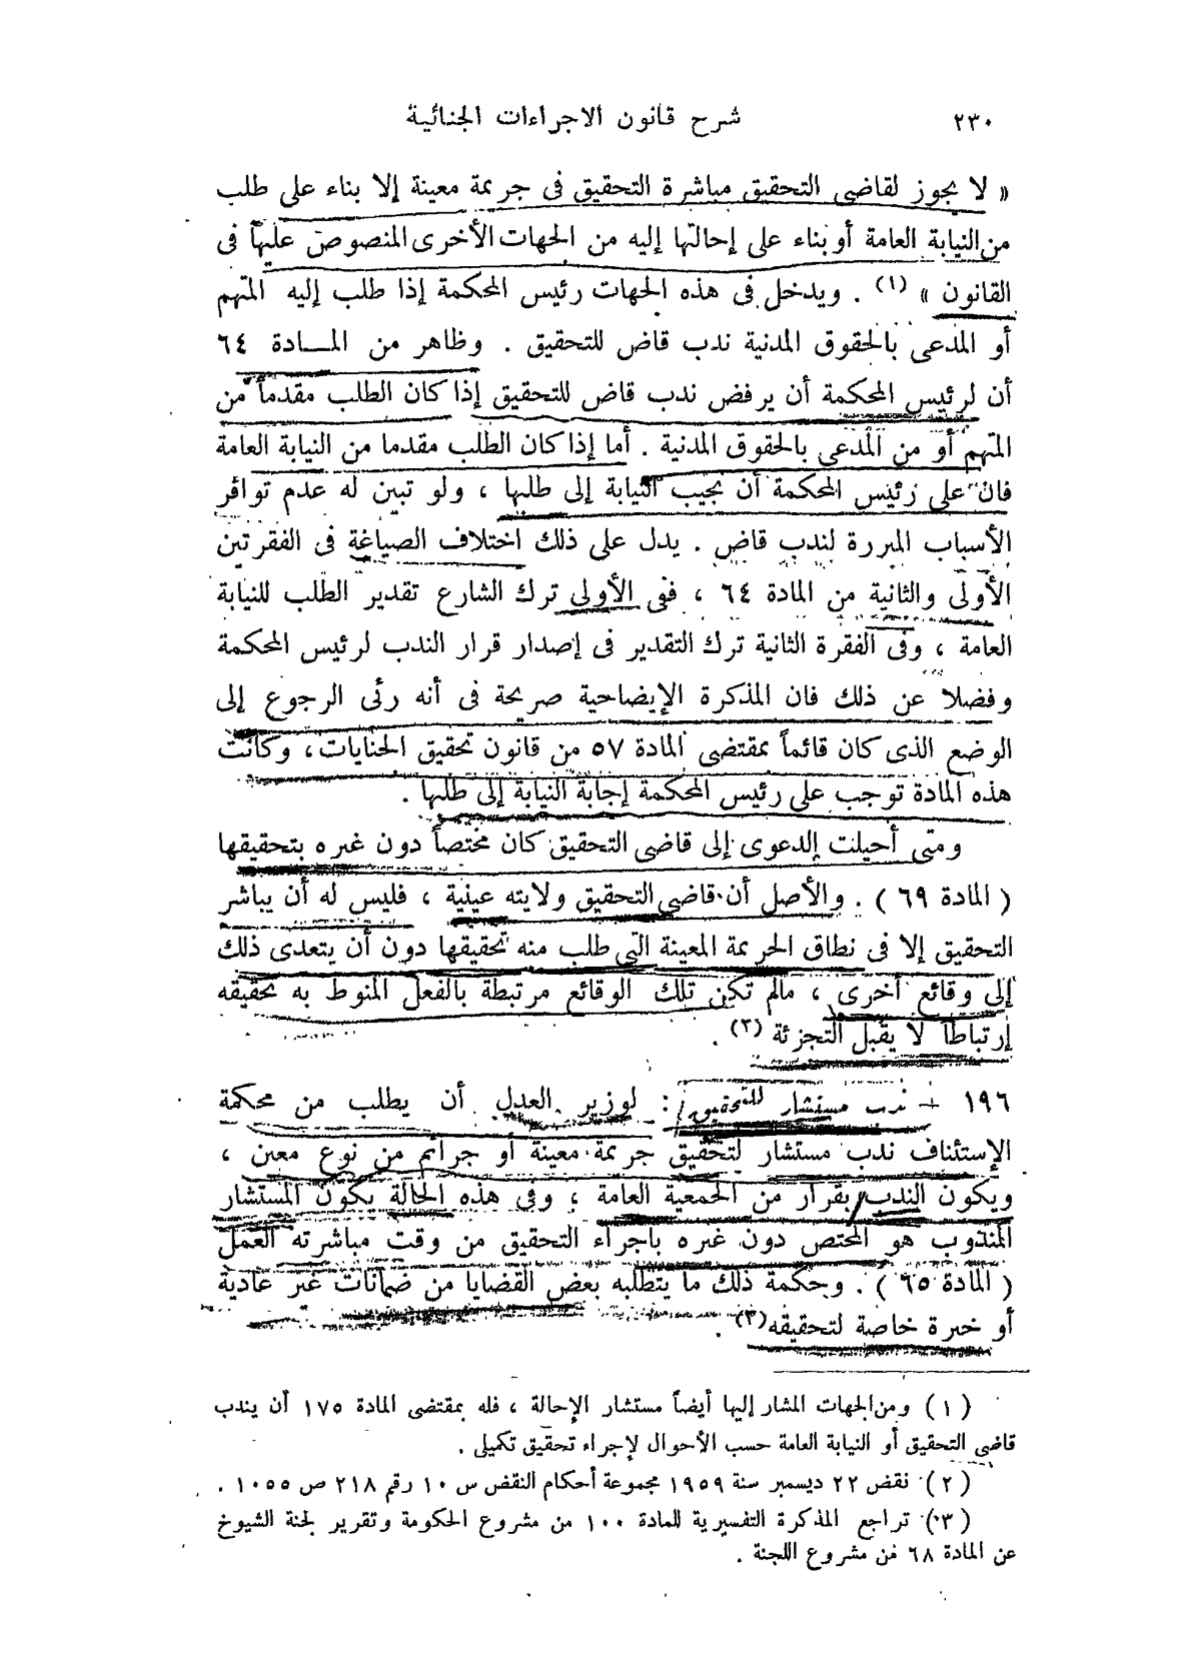 ٢٣٠
شرح قانون الاجراءات الجنائية
« لا يجوز لقاضى التحقيق مباشرة التحقيق فى جريمة معينة إلا بناء على طلب
من النيابة العامة أو بناء على إحالتها إليه من الجهات الأخرى المنصوص عليها فى
القانون » (١) . ويدخل فى هذه الجهات رئيس المحكمة إذا طلب إليه المتهم
أو المدعى بالحقوق المدنية ندب قاض للتحقيق . وظاهر من المادة ٦٤
أن لرئيس المحكمة أن يرفض ندب قاض للتحقيق إذا كان الطلب مقدماً من
المتهم أو من المدعى بالحقوق المدنية . أما إذا كان الطلب مقدما من النيابة العامة
فان على رئيس المحكمة أن يجيب النيابة إلى طلبها ، ولو تبين له عدم توافر
الأسباب المبررة لندب قاض . يدل على ذلك اختلاف الصياغة فى الفقرتين
الأولى والثانية من المادة ٦٤ ، ففى الأولى ترك الشارع تقدير الطلب للنيابة
العامة ، وفى الفقرة الثانية ترك التقدير فى إصدار قرار الندب لرئيس المحكمة
وفضلا عن ذلك فان المذكرة الإيضاحية صريحة فى أنه رئى الرجوع إلى
الوضع الذى كان قائماً بمقتضى المادة ٥٧ من قانون تحقيق الجنايات ، وكانت
هذه المادة توجب على رئيس المحكمة إجابة النيابة إلى طلبها .
ومتى أحيلت الدعوى إلى قاضى التحقيق كان مختصاً دون غيره بتحقيقها
( المادة ٦٩ ) . والأصل أن قاضى التحقيق ولايته عينية ، فليس له أن يباشر
التحقيق إلا فى نطاق الجريمة المعينة التى طلب منه تحقيقها دون أن يتعدى ذلك
إلى وقائع أخرى ، مالم تكن تلك الوقائع مرتبطة بالفعل المنوط به تحقيقه
إرتباطاً لا يقبل التجزئة (٢) .
١٩٦ - ندب مستشار للتحقيق : لوزير العدل أن يطلب من محكمة
الإستئناف ندب مستشار لتحقيق جريمة معينة أو جرائم من نوع معين ،
ويكون الندب بقرار من الجمعية العامة ، وفى هذه الحالة يكون المستشار
المندوب هو المختص دون غيره باجراء التحقيق من وقت مباشرته العمل
( المادة ٦٥ ) . وحكمة ذلك ما يتطلبه بعض القضايا من ضمانات غير عادية
أو خبرة خاصة لتحقيقه (٣) .
(١) ومن الجهات المشار إليها أيضاً مستشار الإحالة ، فله بمقتضى المادة ١٧٥ أن يندب
قاضى التحقيق أو النيابة العامة حسب الأحوال لإجراء تحقيق تكميلى .
(٢) نقض ٢٢ ديسمبر سنة ١٩٥٩ مجموعة أحكام النقض س ١٠ رقم ٢١٨ ص ١٠٥٥ .
(٣) تراجع المذكرة التفسيرية للمادة ١٠٠ من مشروع الحكومة وتقرير لجنة الشيوخ
عن المادة ٦٨ من مشروع اللجنة .